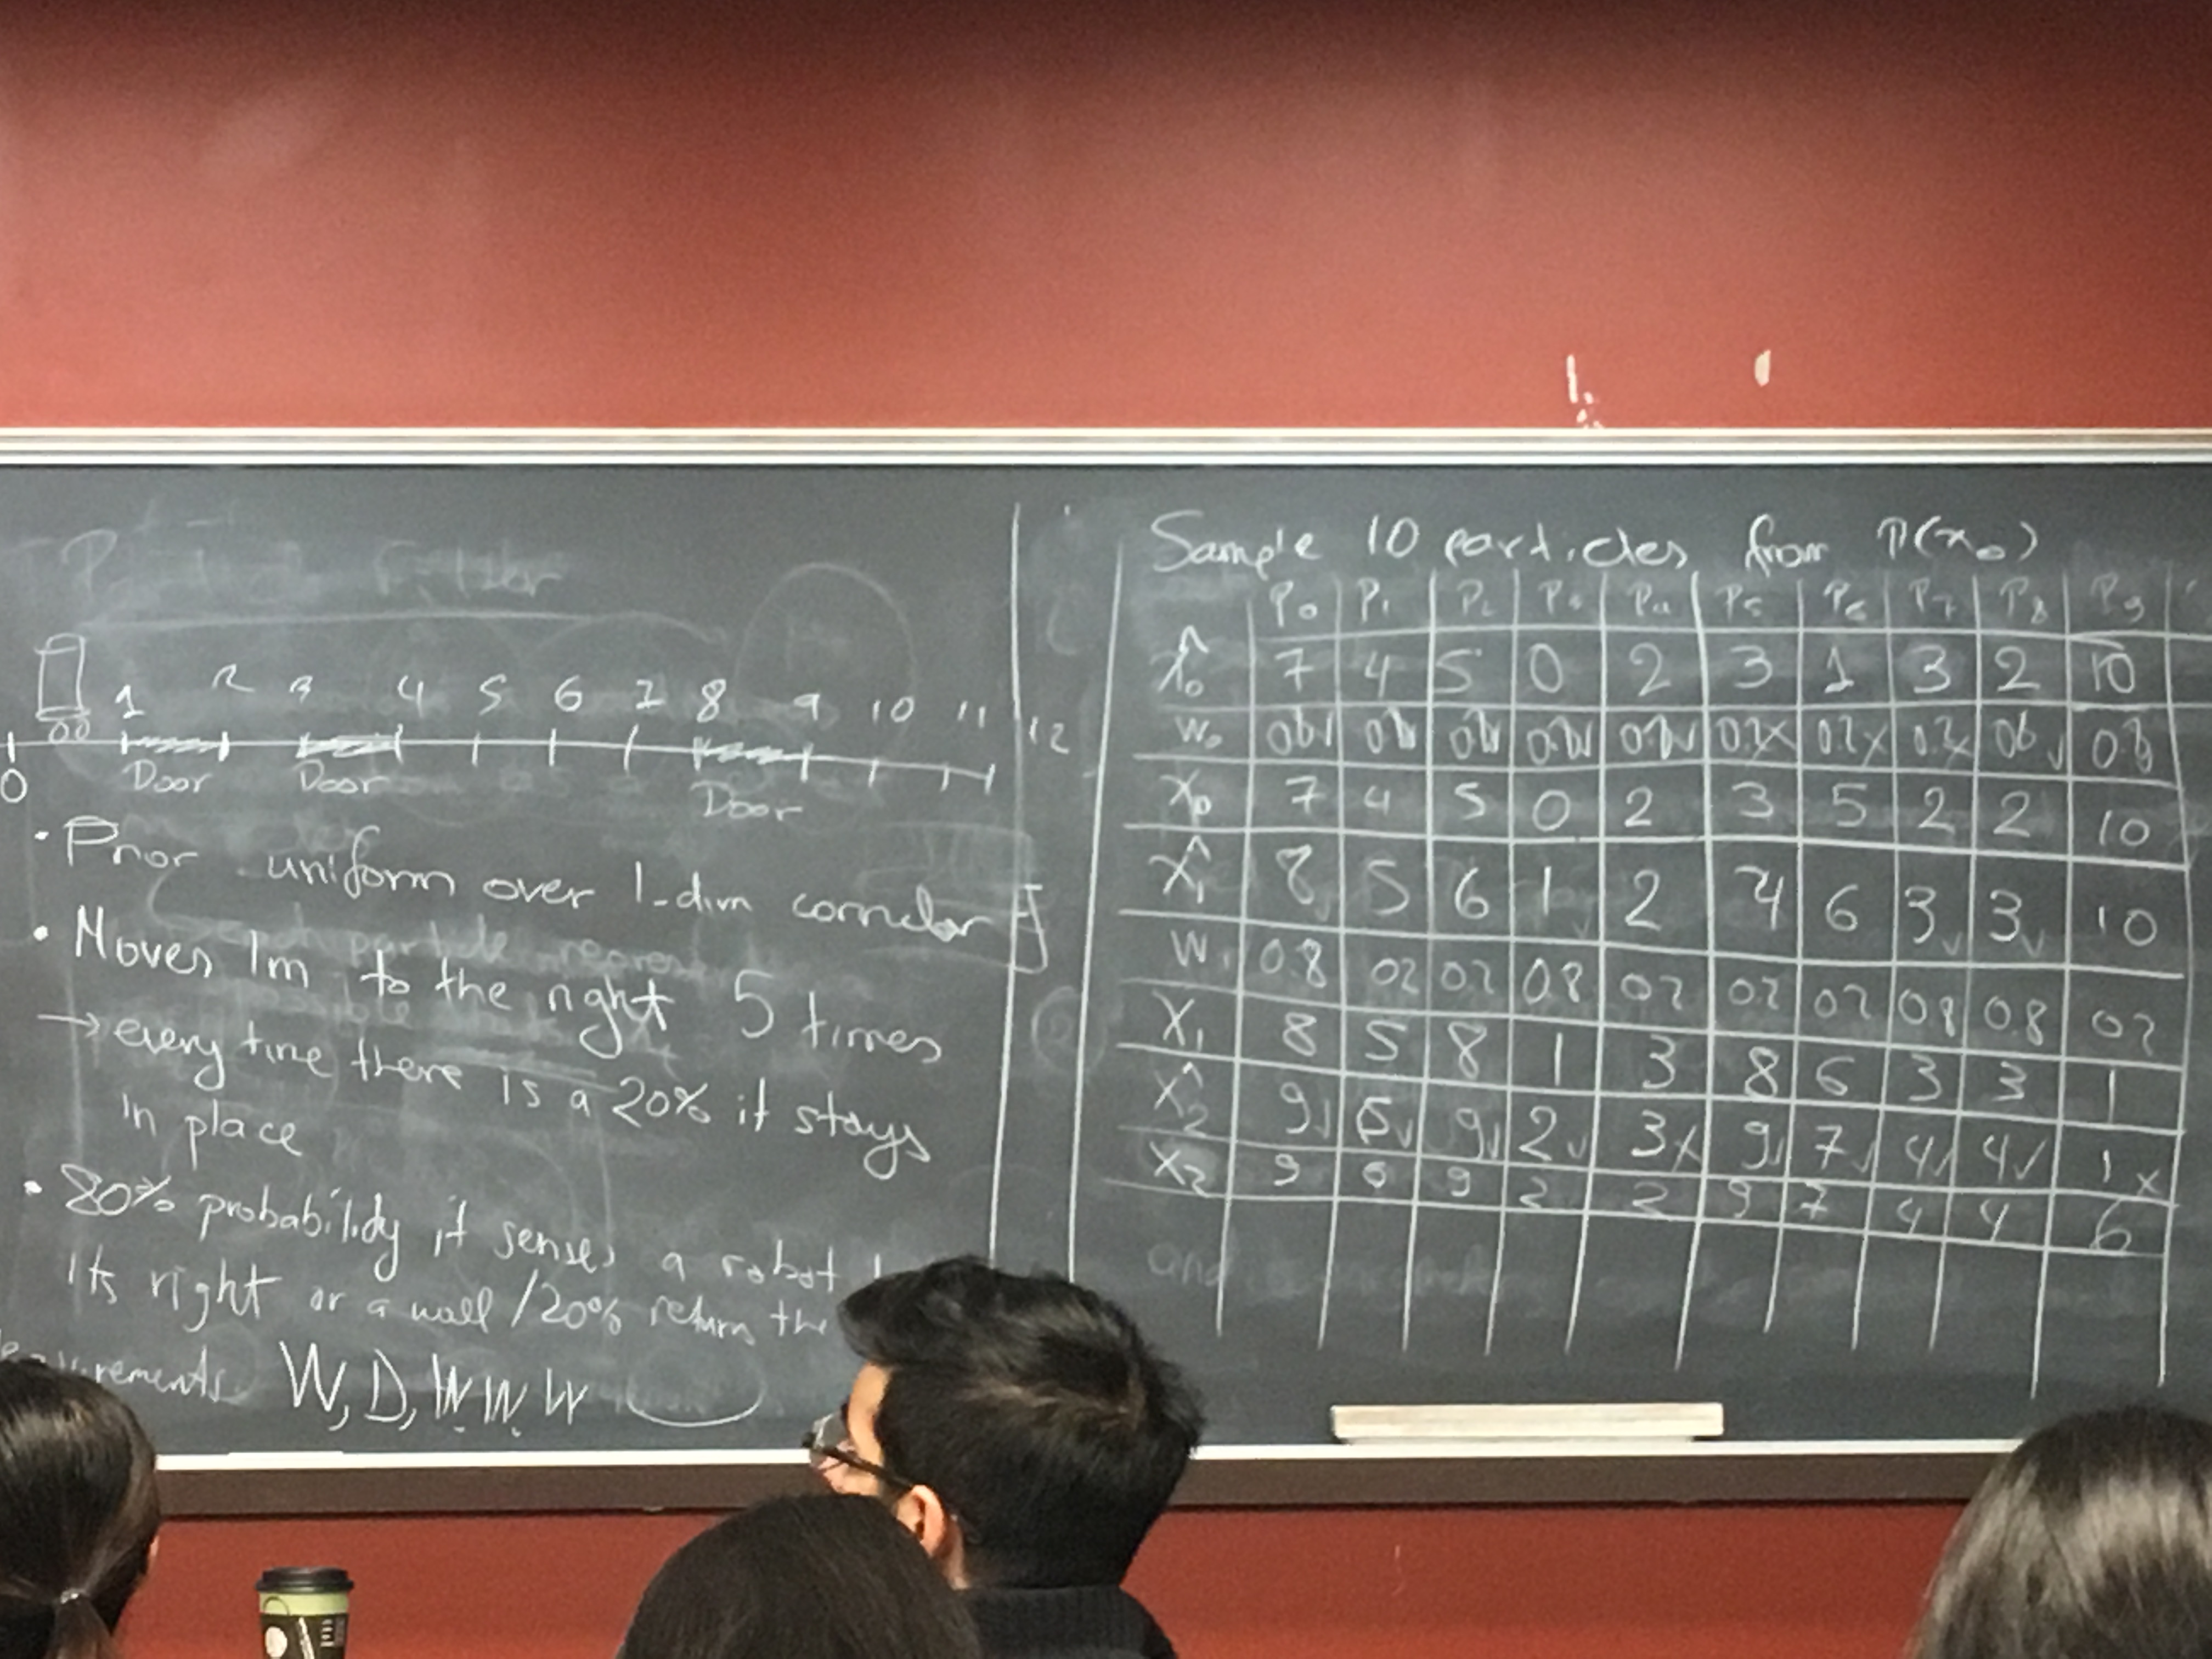 1 2 3 4 5 6 7 8 9 10 11 12
0
Door Door Door
• Prior uniform over 1-dim corridor
• Moves 1m to the right 5 times
→ every time there is a 20% it stays
in place
• 80% probability it senses a robot
its right or a wall / 20% return the
W, D, W W W
Sample 10 particles from P(x₀)
P₀ P₁ P₂ P₃ P₄ P₅ P₆ P₇ P₈ P₉
x̂₀ 7 4 5 0 2 3 1 3 2 10
w₀
x₀ 7 4 5 0 2 3 5 2 2 10
x̂₁ 8 5 6 1 2 4 6 3 3 10
w₁ 0.8 02 0.2 0.8 02 0.2 02 0.8 0.8 02
x₁ 8 5 8 1 3 8 6 3 3 1
x̂₂ 9✓ 6✓ 9✓ 2✓ 3x 9✓ 7✓ 4✓ 4✓ 1x
x₂ 9 6 9 2 2 9 7 4 4 6